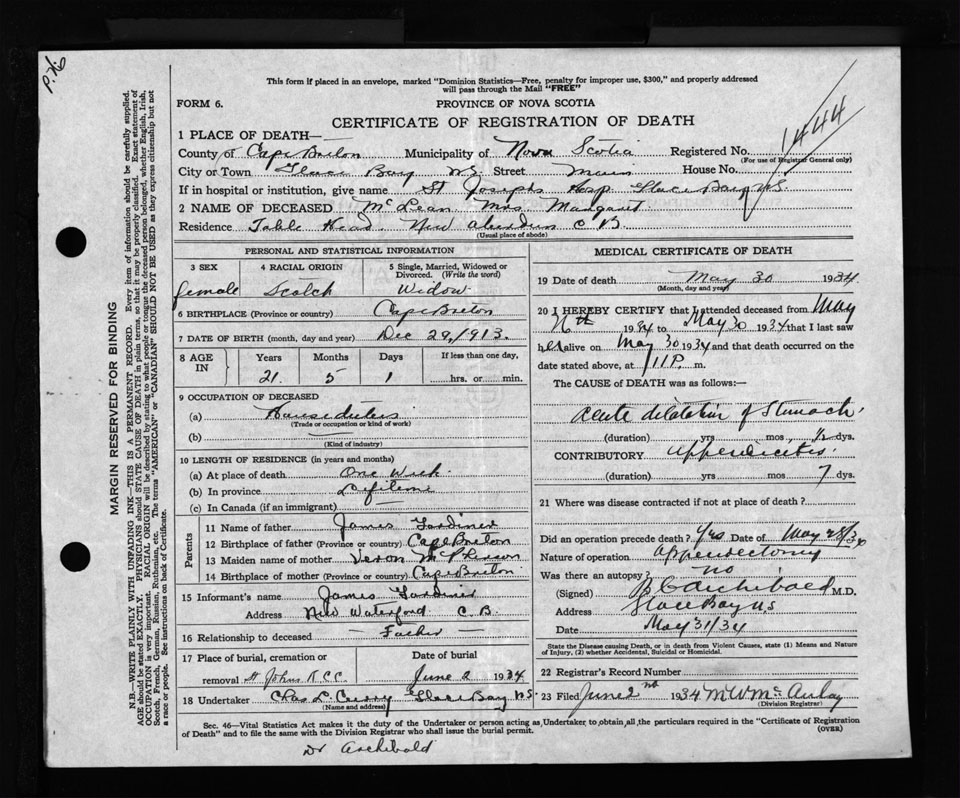 P.K.
This form if placed in an envelope, marked "Dominion Statistics—Free, penalty for improper use, $300," and properly addressed
will pass through the Mail "FREE"
FORM 6.
PROVINCE OF NOVA SCOTIA
CERTIFICATE OF REGISTRATION OF DEATH
1444
1 PLACE OF DEATH—
County of Cape Breton Municipality of Nova Scotia Registered No.
(For use of Registrar General only)
City or Town Glace Bay N.S. Street Main House No.
If in hospital or institution, give name St Josephs Hosp. Glace Bay N.S.
2 NAME OF DECEASED McLean Mrs Margaret
Residence Table Head. New Aberdeen C B.
(Usual place of abode)
PERSONAL AND STATISTICAL INFORMATION
3 SEX 4 RACIAL ORIGIN 5 Single, Married, Widowed or Divorced. (Write the word)
female Scotch Widow
6 BIRTHPLACE (Province or country) Cape Breton
7 DATE OF BIRTH (month, day and year) Dec 29, 1913.
8 AGE IN Years Months Days If less than one day,
21. 5 1 hrs. or min.
9 OCCUPATION OF DECEASED
(a) House duties
(Trade or occupation or kind of work)
(b)
(Kind of industry)
10 LENGTH OF RESIDENCE (in years and months)
(a) At place of death One Week.
(b) In province Lifetime
(c) In Canada (if an immigrant)
Parents
11 Name of father James Gardiner
12 Birthplace of father (Province or country) Cape Breton
13 Maiden name of mother McPherson
14 Birthplace of mother (Province or country) Cape Breton
15 Informant's name James Gardiner
Address New Waterford C.B.
16 Relationship to deceased — Father —
17 Place of burial, cremation or removal St Johns R.C.C. Date of burial June 2 1934
18 Undertaker Chas L. Curry Glace Bay N.S.
(Name and address)
MEDICAL CERTIFICATE OF DEATH
19 Date of death May 30 1934
(Month, day and year)
20 I HEREBY CERTIFY that I attended deceased from May
1934 to May 30 1934 that I last saw
her alive on May 30 1934 and that death occurred on the
date stated above, at 11 P. m.
The CAUSE OF DEATH was as follows:—
Acute dilatation of Stomach.
(duration) yrs mos ½ dys.
CONTRIBUTORY Appendicitis.
(duration) yrs mos 7 dys.
21 Where was disease contracted if not at place of death?
Did an operation precede death? Yes Date of May 28/34
Nature of operation Appendectomy
Was there an autopsy? no
(Signed) Archibald M.D.
Address Glace Bay NS
Date May 31/34
State the Disease causing Death, or in death from Violent Causes, state (1) Means and Nature of Injury, (2) whether Accidental, Suicidal or Homicidal.
22 Registrar's Record Number
23 Filed June 2nd 1934 M W McAulay
(Division Registrar)
Sec. 46—Vital Statistics Act makes it the duty of the Undertaker or person acting as Undertaker to obtain all the particulars required in the "Certificate of Registration
of Death" and to file the same with the Division Registrar who shall issue the burial permit.
(OVER)
Dr Archibald
MARGIN RESERVED FOR BINDING
N.B.—WRITE PLAINLY WITH UNFADING INK—THIS IS A PERMANENT RECORD. Every item of information should be carefully supplied.
AGE should be stated EXACTLY. PHYSICIANS should STATE CAUSE OF DEATH in plain terms, so that it may be properly classified. Exact statement of
OCCUPATION is very important. RACIAL ORIGIN will be described by stating to what people or tongue the deceased person belonged, whether English, Irish,
Scotch, French, German, Russian, Ruthenian, etc. The terms "AMERICAN" or "CANADIAN" SHOULD NOT BE USED as they express citizenship but not
a race or people. See instructions on back of Certificate.